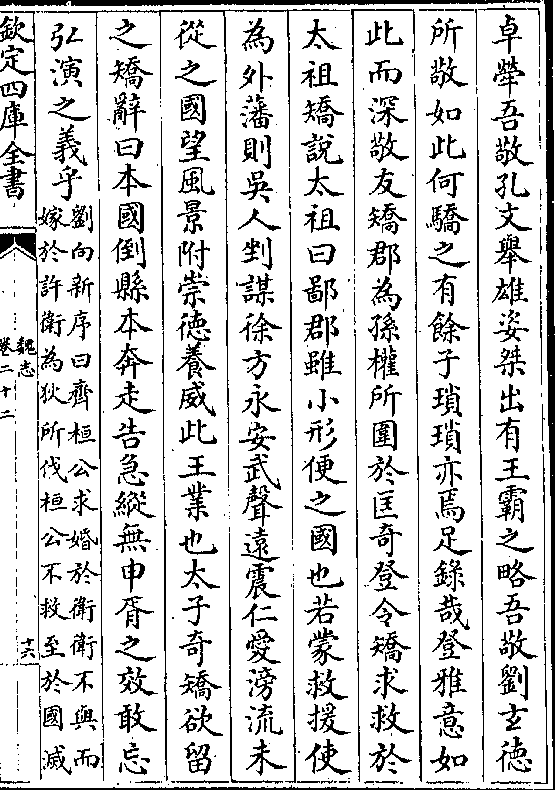 卓犖吾敬孔文舉雄姿桀出有王霸之略吾敬劉玄德
所敬如此何驕之有餘子瑣瑣亦焉足錄哉登雅意如
此而深敬友矯郡為孫權所圍於匡奇登令矯求救於
太祖矯說太祖曰鄙郡雖小形便之國也若蒙救援使
為外藩則吳人剉謀徐方永安武聲遠震仁愛滂流未
從之國望風景附崇徳養威此王業也太子奇矯欲留
之矯辭曰本國倒縣本奔走告急縱無申胥之效敢忘
弘演之義乎
劉向新序曰齊桓公求婚於衛衛不與而
嫁於許衛為狄所伐桓公不救至於國滅
欽定四庫全書
魏志
卷二十二
十六